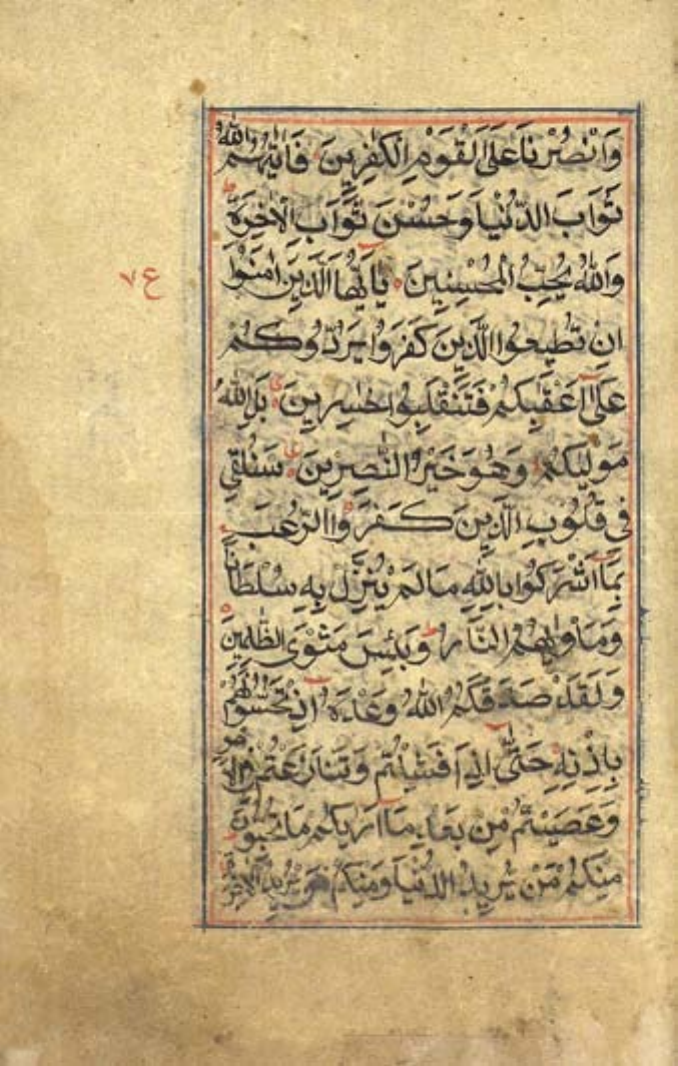 وَانْصُرْنَا عَلَى الْقَوْمِ الْكٰفِرِينَ فَاٰتٰىهُمُ اللّٰهُ
ثَوَابَ الدُّنْيَا وَحُسْنَ ثَوَابِ الْاٰخِرَةِ ط
وَاللّٰهُ يُحِبُّ الْمُحْسِنِينَ يٰاَيُّهَا الَّذِينَ اٰمَنُوا
ع ٧
اِنْ تُطِيعُوا الَّذِينَ كَفَرُوا يَرُدُّوكُمْ
عَلٰى اَعْقَابِكُمْ فَتَنْقَلِبُوا خٰسِرِينَ بَلِ اللّٰهُ
مَوْلٰيكُمْ وَهُوَ خَيْرُ النّٰصِرِينَ سَنُلْقِي
فِي قُلُوبِ الَّذِينَ كَفَرُوا الرُّعْبَ
بِمَا اَشْرَكُوا بِاللّٰهِ مَا لَمْ يُنَزِّلْ بِهِ سُلْطَانًا
وَمَاْوٰيهُمُ النَّارُ وَبِئْسَ مَثْوَى الظّٰلِمِينَ
وَلَقَدْ صَدَقَكُمُ اللّٰهُ وَعْدَهُ اِذْ تَحُسُّونَهُمْ
بِاِذْنِهِ حَتّٰى اِذَا فَشِلْتُمْ وَتَنَازَعْتُمْ فِي الْاَمْرِ
وَعَصَيْتُمْ مِنْ بَعْدِ مَا اَرٰيكُمْ مَا تُحِبُّونَ
مِنْكُمْ مَنْ يُرِيدُ الدُّنْيَا وَمِنْكُمْ مَنْ يُرِيدُ الْاٰخِرَةَ